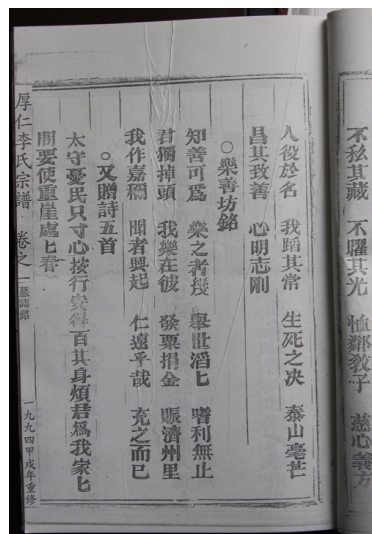 不私其藏 不耀其光 恤鄰教子 慈心義方
人役於名 我蹈其常 生死之决 泰山毫芒
昌其致善 心明志剛
○樂善坊銘
知善可爲 樂之者幾 舉世滔匕 嗜利無止
君獨掉頭 我樂在彼 發粟捐金 賑濟州里
我作嘉 聞者興起 仁遠乎哉 充之而已
○又贈詩五首
太守憂民只寸心按行安得百其身煩君爲我家匕
問要使重崖處匕春
厚仁李氏宗譜 卷之一 墓誌銘 一九九四甲戌年重修